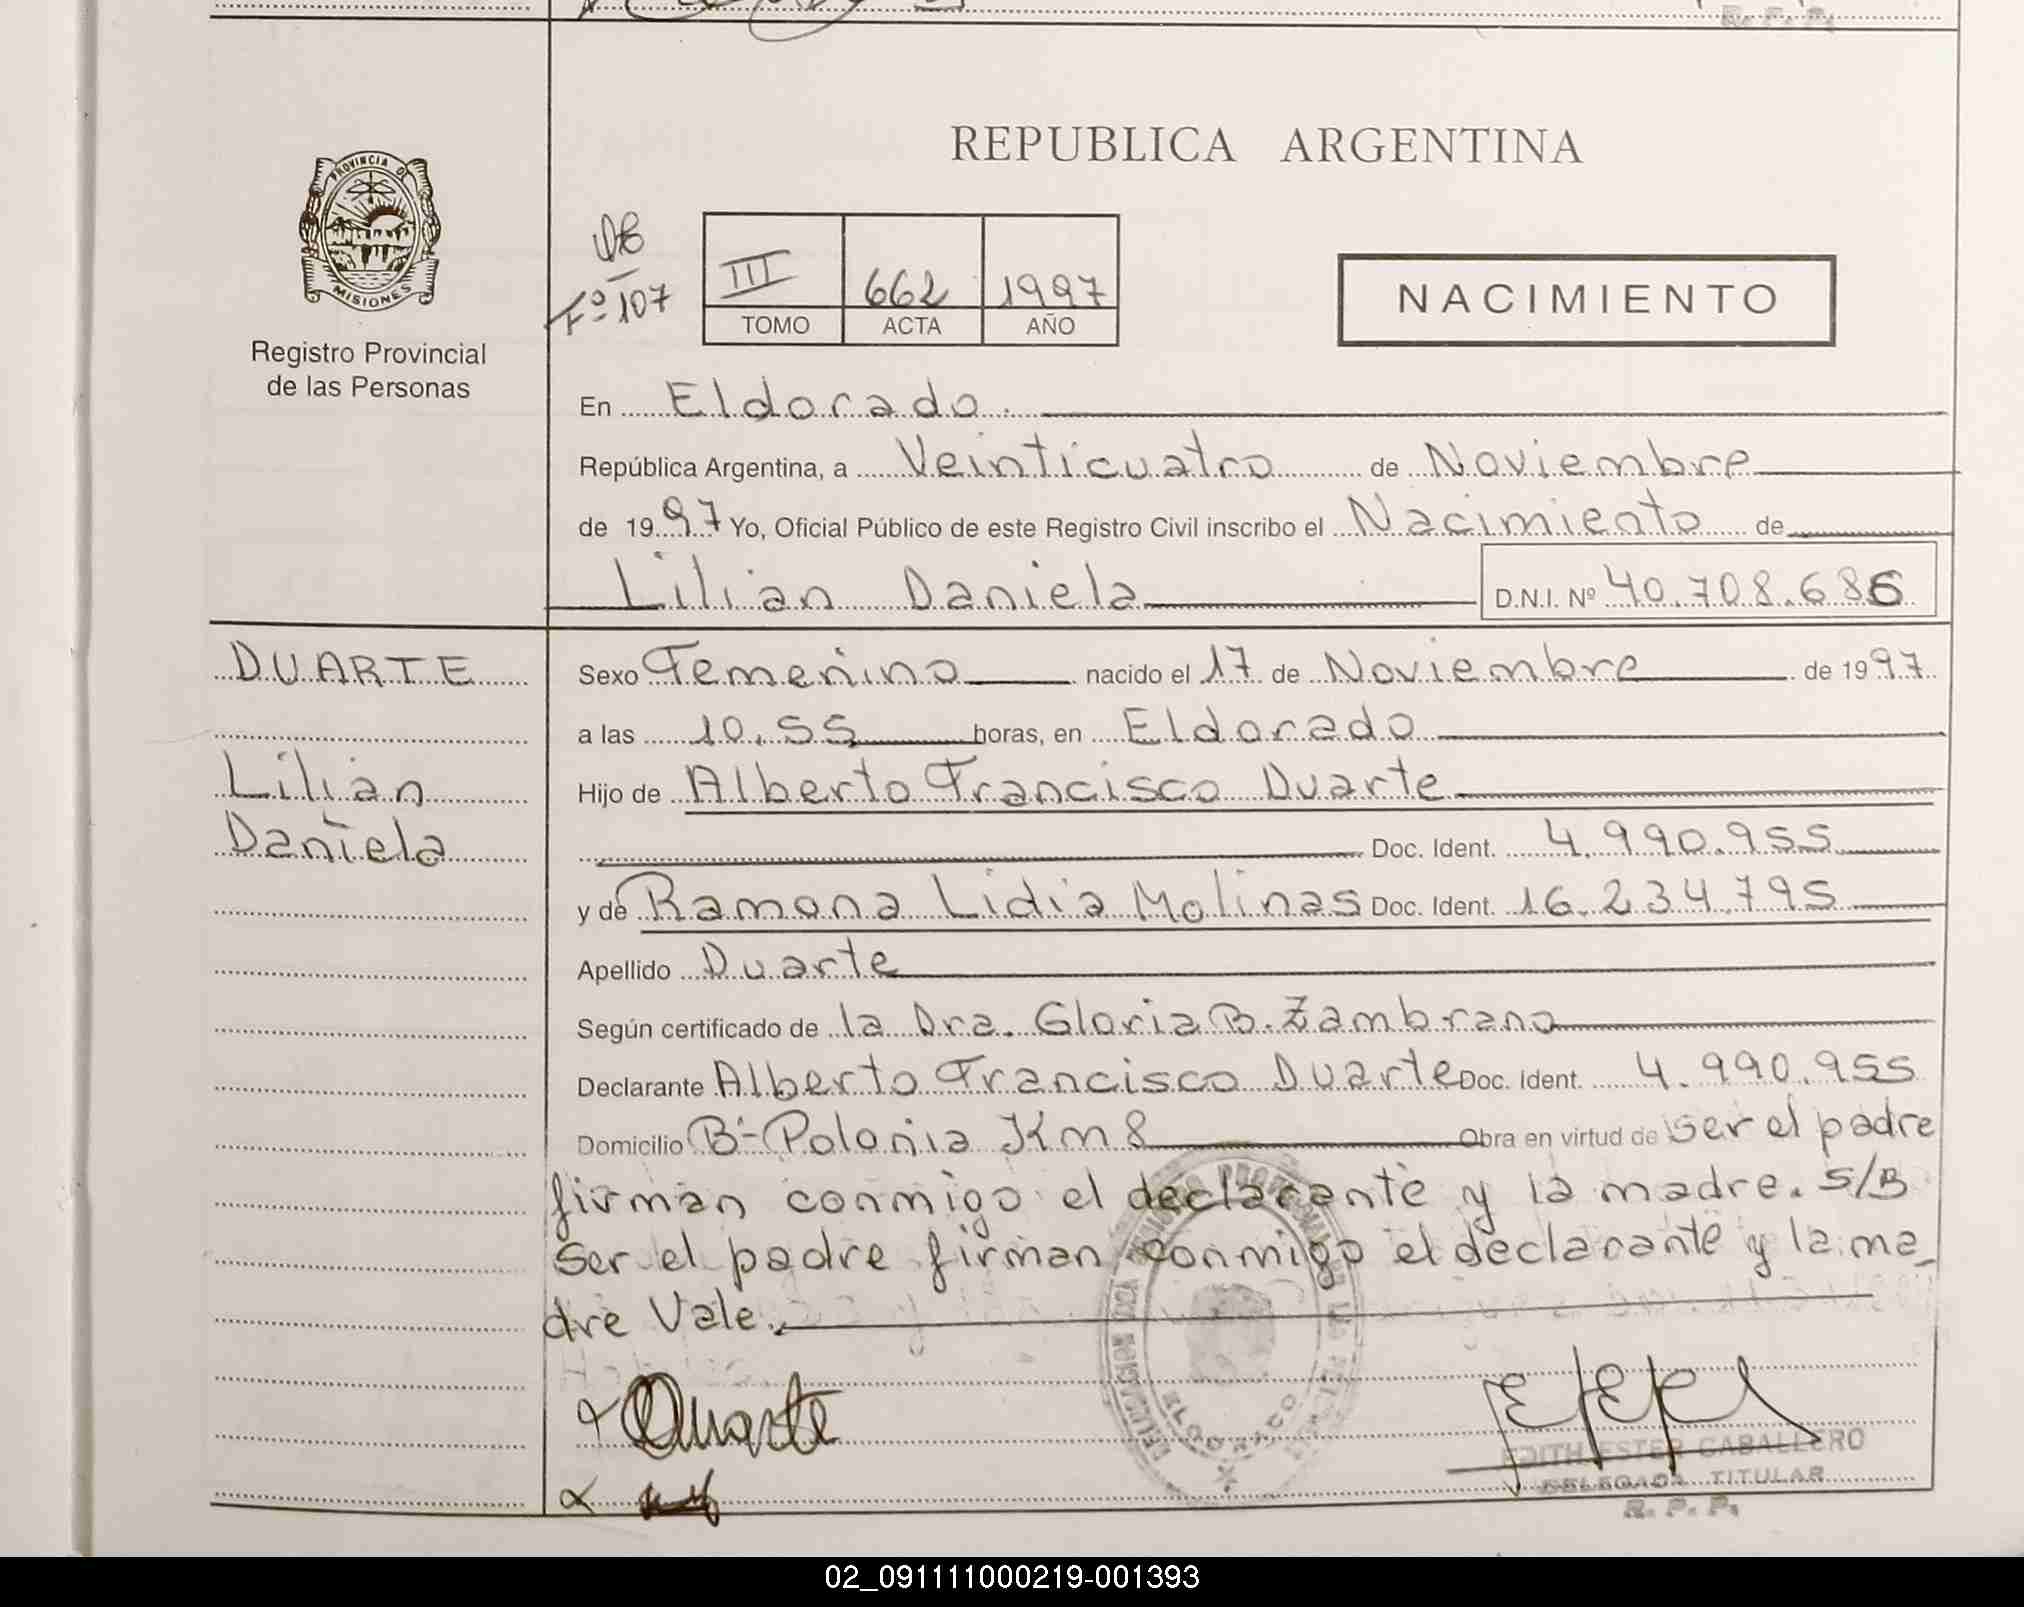 REPUBLICA ARGENTINA
PROVINCIA DE
MISIONES
Registro Provincial
de las Personas
Fº 107
III 662 1997
TOMO ACTA AÑO
NACIMIENTO
En Eldorado
República Argentina, a Veinticuatro de Noviembre
de 1997 Yo, Oficial Público de este Registro Civil inscribo el Nacimiento de
Lilian Daniela D.N.I. Nº 40.708.686
DUARTE
Lilian
Daniela
Sexo Femenino nacido el 17 de Noviembre de 1997
a las 10.55 horas, en Eldorado
Hijo de Alberto Francisco Duarte
Doc. Ident. 4.990.955
y de Ramona Lidia Molinas Doc. Ident. 16.234.795
Apellido Duarte
Según certificado de la Dra. Gloria B. Zambrano
Declarante Alberto Francisco Duarte Doc. Ident. 4.990.955
Domicilio Bº Polonia Km 8 Obra en virtud de ser el padre
firman conmigo el declarante y la madre. S/B
Ser el padre firman conmigo el declarante y la ma-
dre Vale.
Duarte
EDITH ESTER CABALLERO
DELEGADA TITULAR
R. P. P.
ELDORADO
02_091111000219-001393